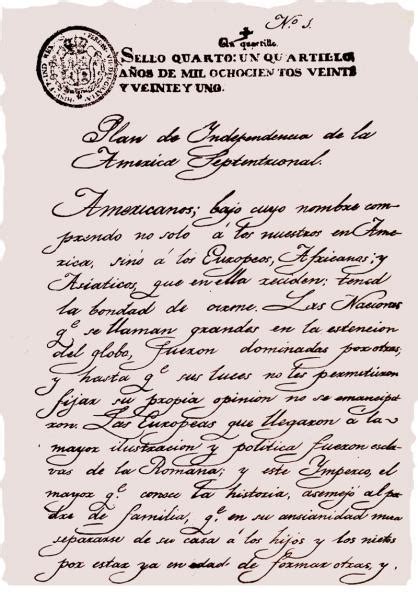 N.o 1.
Un quartillo.
SELLO QUARTO: UN QUARTILLO,
AÑOS DE MIL OCHOCIENTOS VEINTE
Y VEINTE Y UNO.
Plan de Independencia de la
America Septentrional.
Americanos; bajo cuyo nombre com
prendo no solo á los nuestros en Ame
rica, sino á los Europeos, Africanos; y
Asiaticos, que en ella reciden: tened
la bondad de oirme. Las Naciones
q.e se llaman grandes en la estencion
del globo, fueron dominadas por otras;
y hasta q.e sus luces no les permitieron
fijar su propia opinion no se emancipa
ron. Las Europeas que llegaron a la
mayor ilustracion y politica fueron escla
vas de la Romana; y este Imperio, el
mayor q.e conoce la historia, asemejó al pa
dre de familia, q.e en su ansianidad mira
separarse de su casa á los hijos y los nietos
por estar ya en edad de formar otras, y